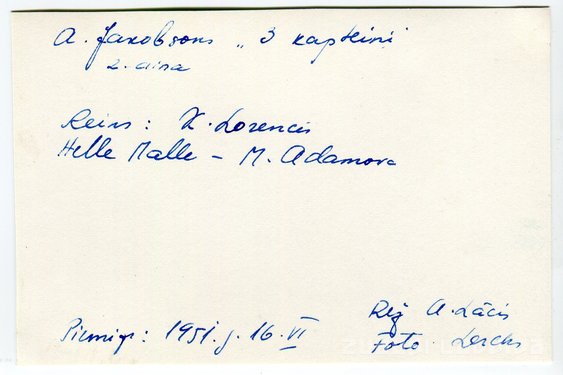 A. Jakobsons „3 kapteiņi"
2. aina
Reins: K. Lorencis
Helle Malle - M. Adamova
Rež A. Lācis
Pirmizr: 1951. g. 16. VI
Foto Lerchs